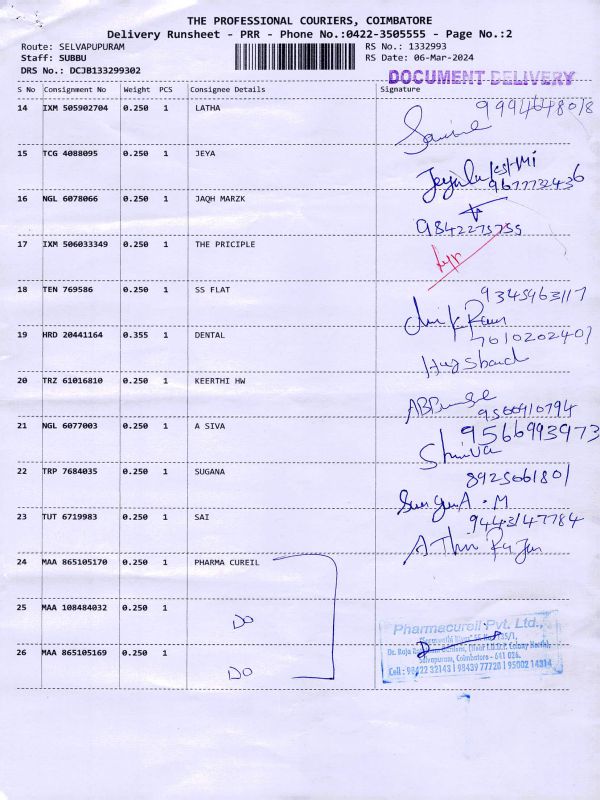 THE PROFESSIONAL COURIERS, COIMBATORE
Delivery Runsheet - PRR - Phone No.:0422-3505555 - Page No.:2
Route: SELVAPUPURAM RS No.: 1332993
Staff: SUBBU RS Date: 06-Mar-2024
DRS No.: DCJB133299302
DOCUMENT DELIVERY
S No Consignment No Weight PCS Consignee Details Signature
14 IXM 505902704 0.250 1 LATHA
15 TCG 4088095 0.250 1 JEYA
9677732436
16 NGL 6078066 0.250 1 JAQH MARZK
9842275755
17 IXM 506033349 0.250 1 THE PRICIPLE
18 TEN 769586 0.250 1 SS FLAT 9345963117
19 HRD 20441164 0.355 1 DENTAL 7610202403
Husband
20 TRZ 61016810 0.250 1 KEERTHI HW
9566910794
21 NGL 6077003 0.250 1 A SIVA 9566993973
22 TRP 7684035 0.250 1 SUGANA 892506180/
23 TUT 6719983 0.250 1 SAI
24 MAA 865105170 0.250 1 PHARMA CUREIL
25 MAA 108484032 0.250 1
DO
Pharmacureil Pvt. Ltd.,
26 MAA 865105169 0.250 1
Selvapuram, Coimbatore - 641 026.
DO
Cell : 98422 32143 | 98439 77728 | 95002 14314